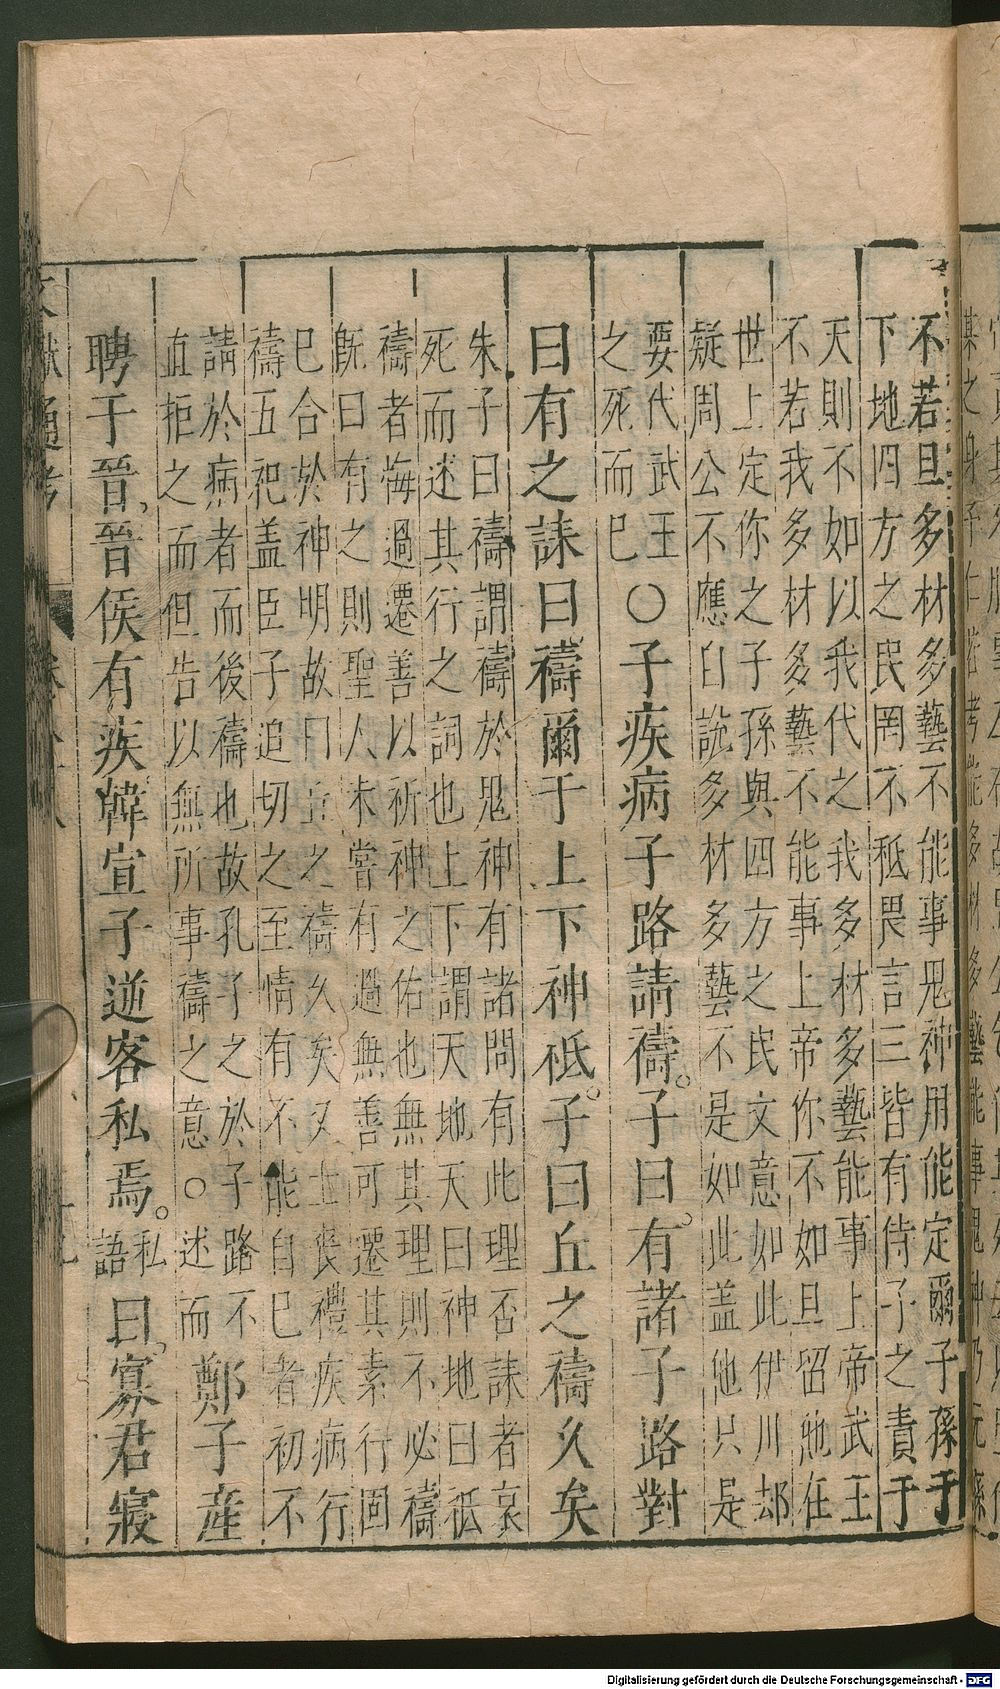 不若旦多材多藝不能事鬼神用能定爾子孫于
下地四方之民罔不秪畏言三皆有侍子之責于
天則不如以我代之我多材多藝能事上帝武王
不若我多材多藝不能事上帝你不如且留他在
世上定你之子孫與四方之民文意如此伊川却
疑周公不應自說多材多藝不是如此盖他只是
要代武王
之死而已○子疾病子路請禱。子曰。有諸子路對
曰有之誄曰禱爾于上下神祗。子曰丘之禱久矣
朱子曰禱謂禱於鬼神有諸問有此理否誄者哀
死而述其行之詞也上下謂天地天曰神地曰祇
禱者悔過遷善以祈神之佑也無其理則不必禱
既曰有之則聖人未嘗有過無善可遷其素行固
已合於神明故曰丘之禱久矣又士喪禮疾病行
禱五祀盖臣子追切之至情有不能自已者初不
請於病者而後禱也故孔子之於子路不
直拒之而但告以無所事禱之意○述而鄭子産
聘于晉,晉侯有疾韓宣子逆客私焉。私語曰,寡君寢
文獻通考
Digitalisierung gefördert durch die Deutsche Forschungsgemeinschaft - DFG